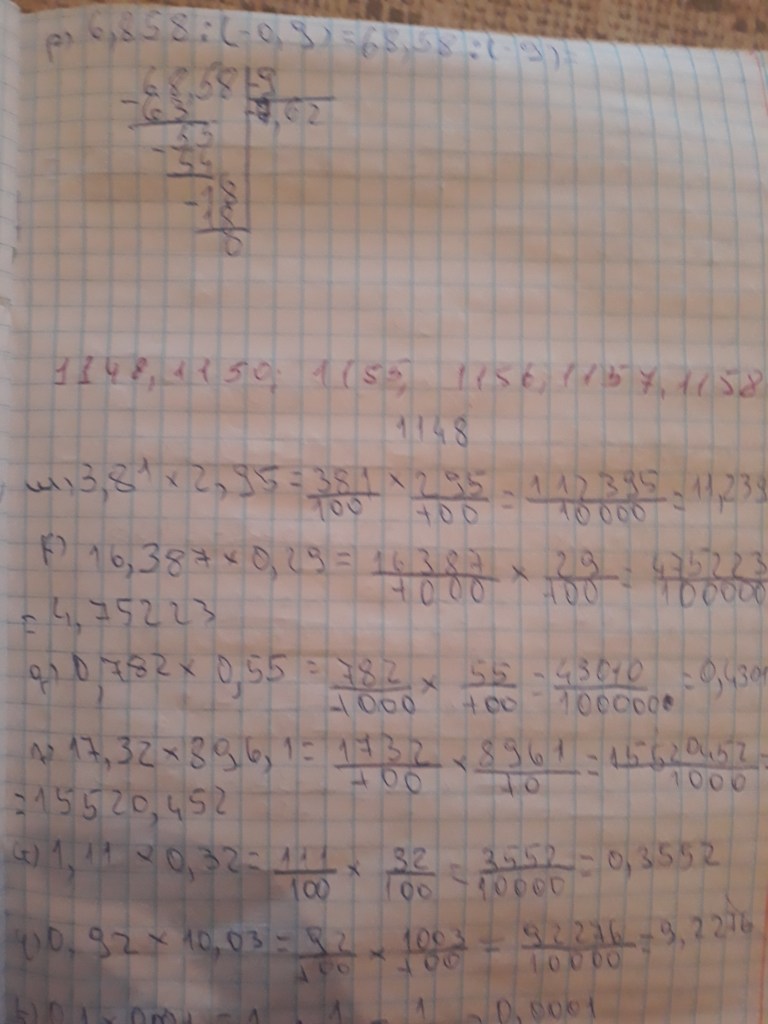 6,858:(-0,9)=68,58:(-9)=
68,58 | 9
-63 -7,62
55
-54
-18
18
0
1148, 1150; 1155, 1156, 1157, 1158
1148
3,81 × 2,95 = 381/100 × 295/100 = 112395/10000 = 11,239
16,387 × 0,29 = 16387/1000 × 29/100 = 475223/100000
= 4,75223
0,782 × 0,55 = 782/1000 × 55/100 = 43010/100000 = 0,4301
17,32 × 896,1 = 1732/100 × 8961/10 = /1000 =
= 15520,452
1,11 × 0,32 = 111/100 × 32/100 = 3552/10000 = 0,3552
0,92 × 10,03 = 92/100 × 1003/100 = 92276/10000 = 9,2276
= 0,0001